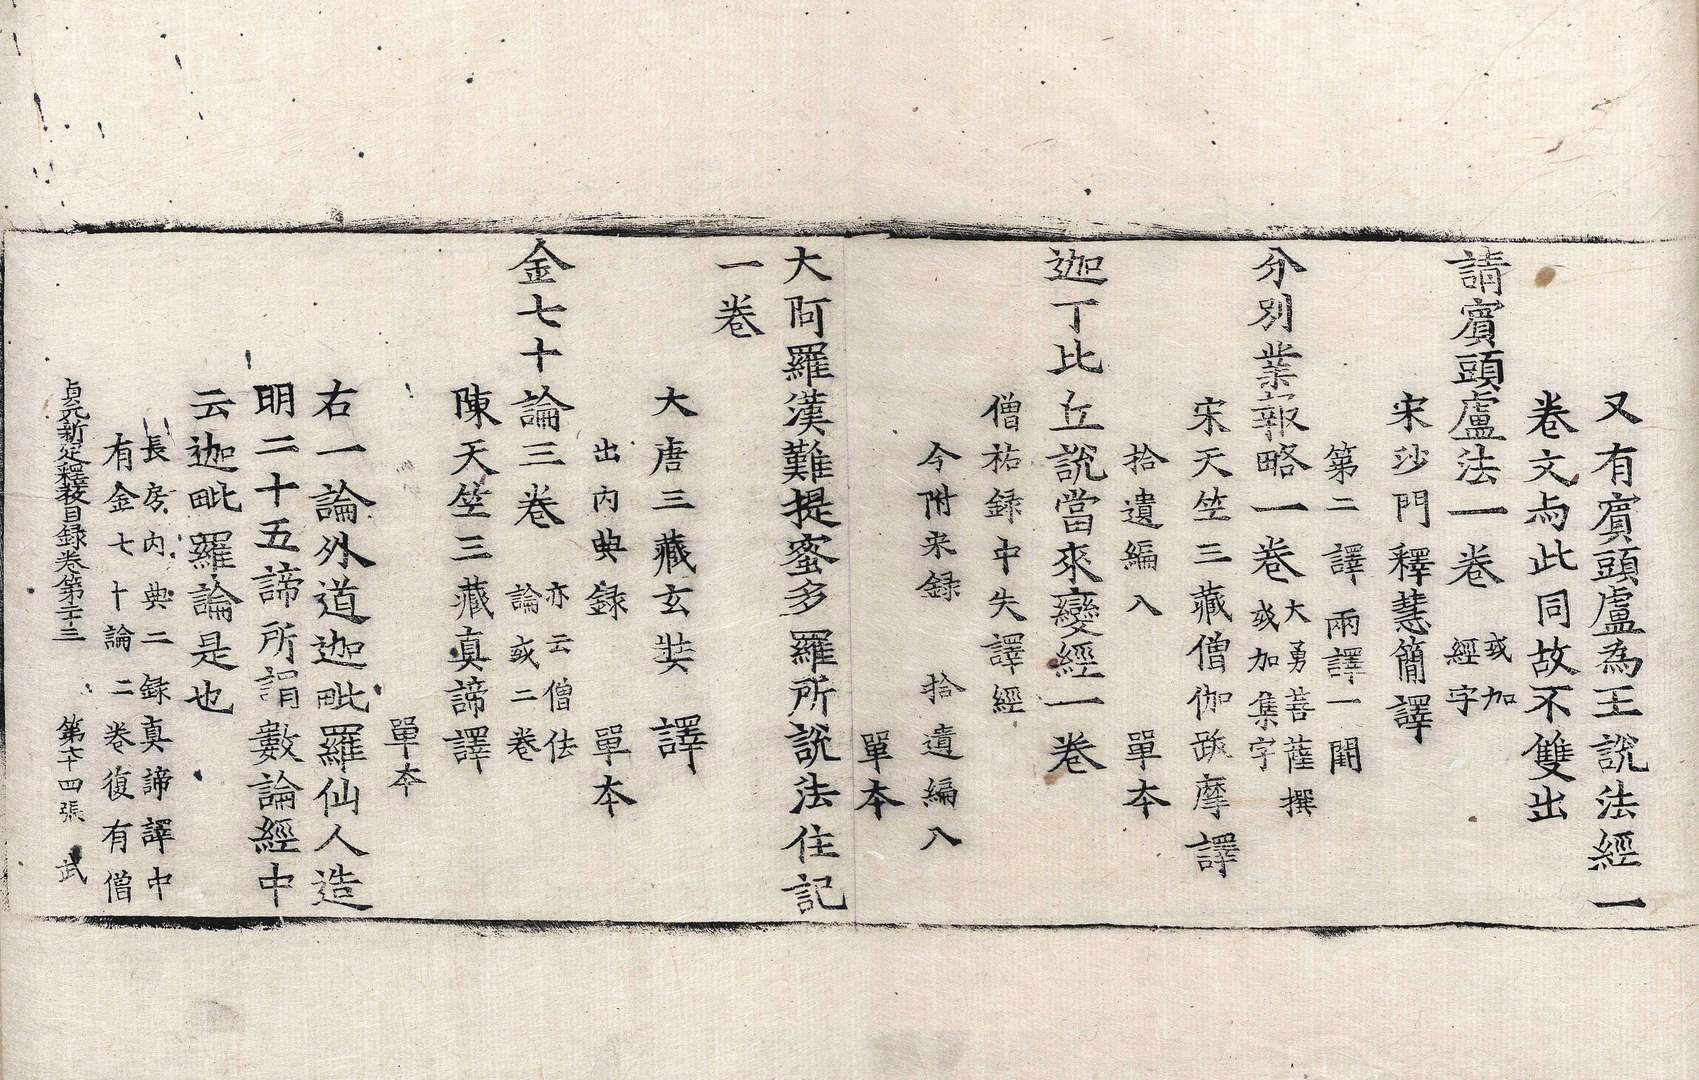 又有賔頭盧為王說法經一
卷文与此同故不雙出
請賔頭盧法一卷 或加經字
宋沙門釋慧簡譯
第二譯兩譯一闕
分別業報略一卷 大勇菩薩撰或加集字
宋天竺三藏僧伽跋摩譯
拾遺編入 單本
迦丁比丘說當來變經一卷
僧祐録中失譯經
今附宋録 拾遺編入
單本
大阿羅漢難提蜜多羅所說法住記
一卷
大唐三藏玄奘 譯
出內典録 單本
金七十論三卷 亦云僧佉論或二卷
陳天竺三藏真諦譯
單本
右一論外道迦毗羅仙人造
明二十五諦所謂數論經中
云迦毗羅論是也
長房內典二録真諦譯中
有金七十論二卷復有僧
貞元新定釋教目録卷第二十三 第六十四張 武